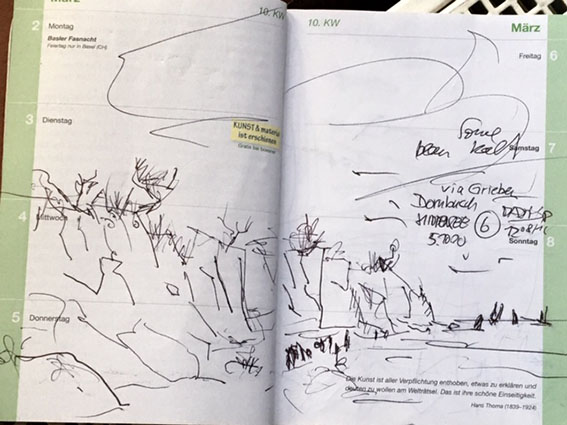 März
10. KW
2 Montag
Basler Fasnacht
Feiertag nur in Basel (CH)
3 Dienstag
KUNST & material
ist erschienen
4 Mittwoch
5 Donnerstag
10. KW
März
Freitag 6
Samstag 7
via Grieben
Dornbusch
6
Sonntag 8
Die Kunst ist aller Verpflichtung enthoben, etwas zu erklären und
deuten zu wollen am Welträtsel. Das ist ihre schöne Einseitigkeit.
Hans Thoma (1839–1924)